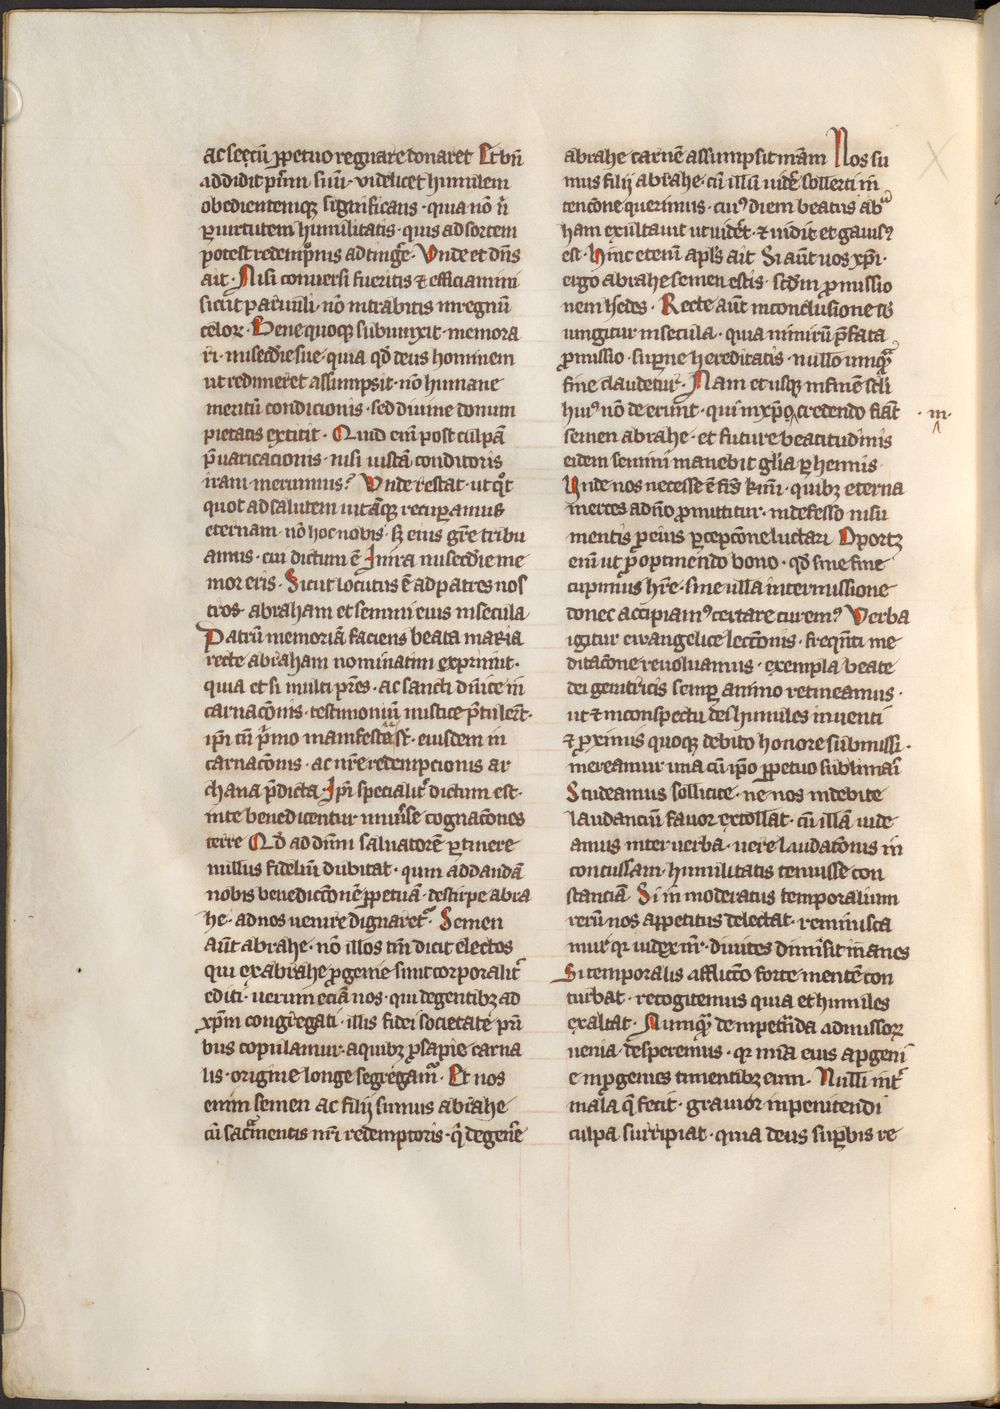 ac secũ ꝑpetuo regnare donaret Et bñ
addidit pũm suũ · videlicet humilem
obedientemqꝫ significans · quia nõ ñ
ꝑ uirtutem humilitatis · quis ad sortem
potest redemptionis adtinge᷒ · Vnde et dñs
ait · Nisi conuersi fueritis ⁊ efficiamini
sicut paruuli · nõ intrabitis in regnũ
celoꝝ · Bene quoqꝫ subiunxit · memora
ri · misẽdie sue · quia qđ deus hominem
ut redimeret assumpsit · nõ humane
meritũ condicionis · sed diuine donum
pietatis extitit · Quid em̃ post culpã
p̃uaricacionis · nisi iustã conditoris
iram meruimus? Vnde restat · ut qͥcqͥd
quot ad salutem uitãqꝫ recuꝑamus
eternam · nõ hoc nobis · sꝫ eius grẽ tribu
amus · cui dictum ẽ In ira misẽdie me
mor eris · Sicut locutus ẽ ad patres nos
tros · abraham et semini eius in secula
Patrũ memoriã faciens beata maria
recte abraham nominatim exprimit ·
quia et si multi pr̃es · ac sancti dñice in
carnacõnis · testimoniũ mistice p̃tulerũt ·
ip̃i tñ pͥmo manifesta sũt · eiusdem in
carnacõnis · ac nr̃e redempcionis ar
chana p̃dicta · Ip̃i specialit᷒ dictum est ·
in te benedicentur uniuerse cognacõnes
terre Qđ ad dñm saluatorẽ ꝑtinere
nullus fideliũ dubitat · qui ad dandã
nobis benedictõnẽ ꝑpetuã · de stirpe abra
he · ad nos uenire dignaret᷒ · Semen
aũt abrahe · nõ illos tm̃ dicit electos
qui ex abrahe ꝓgenie sunt corporalit᷒
editi · uerum eciã nos · qui de gentibꝫ ad
xp̃m congregati · illis fidei societate pat͂
bus copulamur · a quibꝫ ꝓsapie carna
lis · origine longe segregam᷒ · Et nos
enim semen ac filij sumus abrahe
cũ sacͣmentis nr̃i redemptoris · qͥ de gen̾e
abrahe carnẽ assumpsit in am̃ Nos su
mus filij abrahe · cũ illũ uidẽ sollerti in
tencõne querimus · cuiꝰ diem beatus abͣ
ham exultauit ut uider̃t · ⁊ uidit et gauisꝰ
est · Hinc etenĩ apl̃s ait Si aũt uos xp̃i ·
ergo abrahe semen estis · scđm ꝓmissio
nem h̾edes · Recte aũt in conclusione
iungitur in secula · quia nimirũ p̃fata
ꝓmissio · suꝑne hereditatis · nullo umqͣ
fine claudetur · Nam et usqꝫ in finẽ scl̃i
huiꝰ nõ deerunt · qui in xp̃o credendo fiãt · in ·
semen abrahe · et future beatitudinis
eidem semini manebit gl̃ia ꝑhennis ·
Vnde nos necesse ẽ fr̃s km̃i · quibꝫ eterna
merces a dño ꝓmittitur · indefesso nisu
mentis ꝓ eius ꝑcepcõne luctari Oportꝫ
enĩ ut ꝓ optinendo bono · qđ sine fine
cupimus hr̃e · sine ulla intermissione
donec accipiamꝰ certare curemꝰ Verba
igitur ewangelice lectõnis · freqͥnti me
ditacõne reuoluamus · exempla beate
dei genitricis semꝑ animo retineamus ·
ut ⁊ in conspectu dei humiles inuenti
⁊ proximis quoqꝫ debito honore submissi ·
mereamur una cũ ip̃o ꝑpetuo sublimari
Studeamus sollicite · ne nos indebite
laudanciũ fauor extollat · cũ illã uide
amus inter uerba · uere laudatõnis in
concussam · humilitatis tenuisse con
stanciã Si inmoderatus temporalium
rerũ nos appetitus delectat · reminisca
mur qͥ iudex nr̃ · diuites dimisit inanes
Si temporalis afflictõ forte mentẽ con
turbat · recogitemus quia et humiles
exaltat · Numqͣ de inpetrãda admissoꝝ
uenia · desperemus · qͥ mĩa eius a ꝓgeni
e in ꝓgenies timentibꝫ eum · Nulli int᷒
mala qͣ fecit · grauior inpenitendi
culpa surripiat · quia deus suꝑbis re